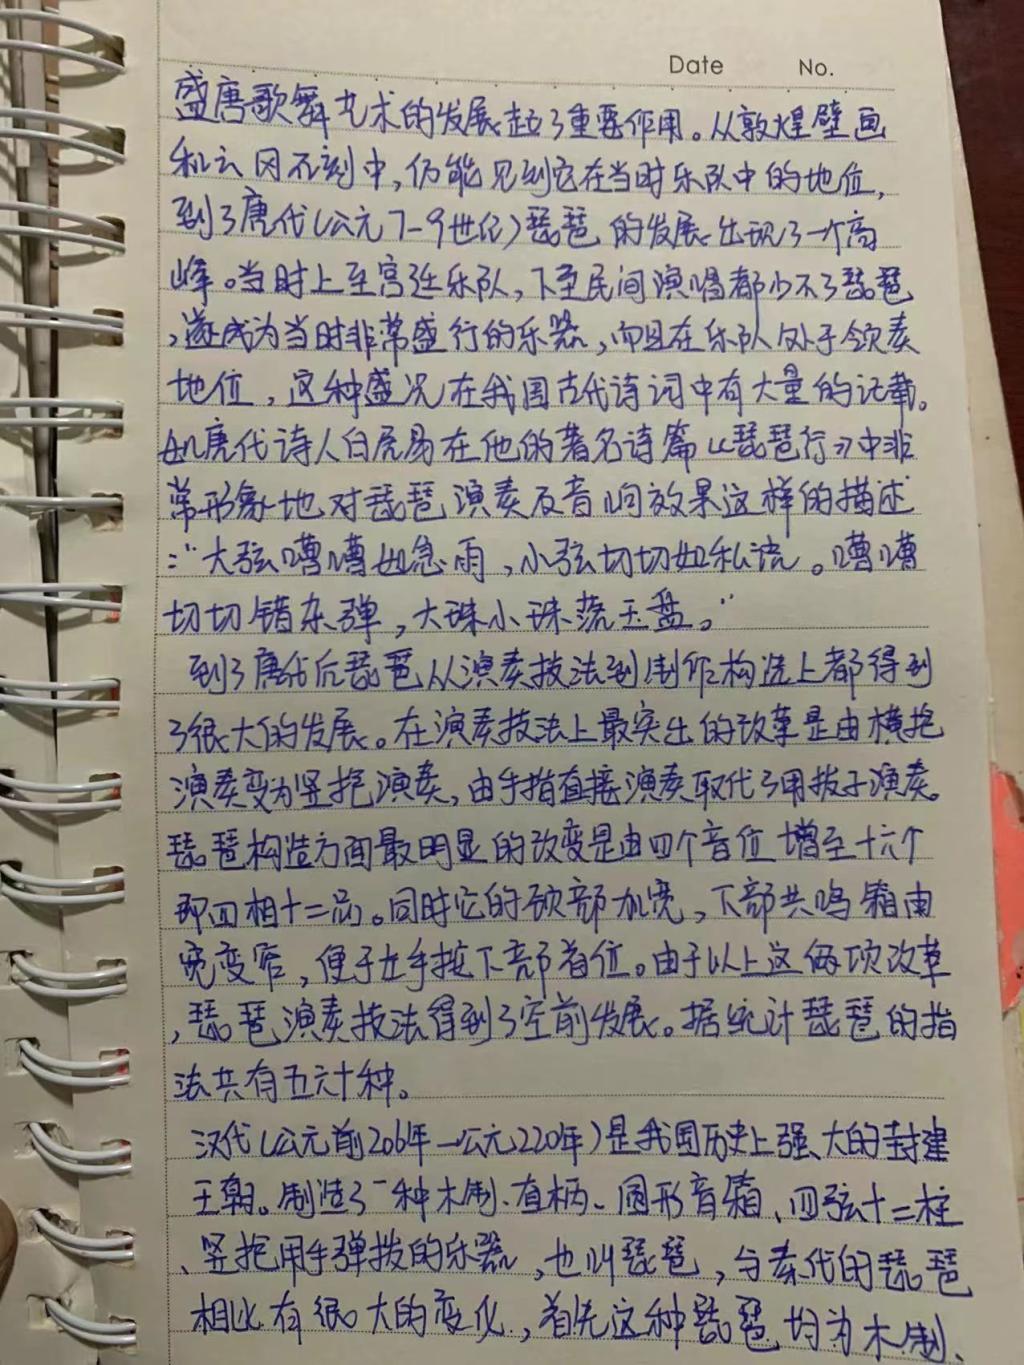 Date No.
盛唐歌舞艺术的发展起了重要作用。从敦煌壁画
和云冈石刻中,仍能见到它在当时乐队中的地位,
到了唐代(公元7-9世纪)琵琶的发展出现了一个高
峰。当时上至宫廷乐队,下至民间演唱都少不了琵琶
,遂成为当时非常盛行的乐器,而且在乐队处于领奏
地位,这种盛况在我国古代诗词中有大量的记载。
如唐代诗人白居易在他的著名诗篇《琵琶行》中非
常形象地对琵琶演奏及音响效果这样的描述
:"大弦嘈嘈如急雨,小弦切切如私语。嘈嘈
切切错杂弹,大珠小珠落玉盘。"
到了唐代后琵琶从演奏技法到制作构造上都得到
了很大的发展。在演奏技法上最突出的改革是由横抱
演奏变为竖抱演奏,由手指直接演奏取代了用拨子演奏。
琵琶构造方面最明显的改变是由四个音位增至十六个
即四相十二品。同时它的颈部加宽,下部共鸣箱由
宽变窄,便于左手按下部音位。由于以上这每项改革
,琵琶演奏技法得到了空前发展。据统计琵琶的指
法共有五六十种。
汉代(公元前206年—公元220年)是我国历史上强大的封建
王朝。制造了一种木制、直柄、圆形音箱、四弦十二柱
、竖抱用手弹拨的乐器,也叫琵琶,与秦代的琵琶
相比有很大的变化,首先这种琵琶均为木制、